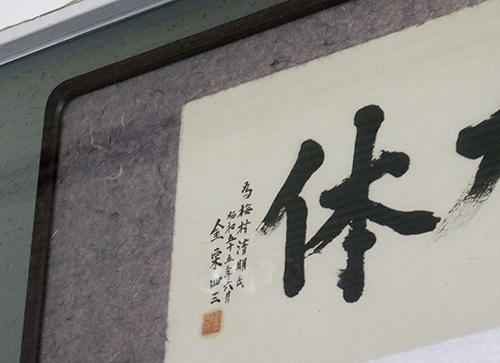 体
為梅村清明氏
昭和五十五年六月
金栗四三